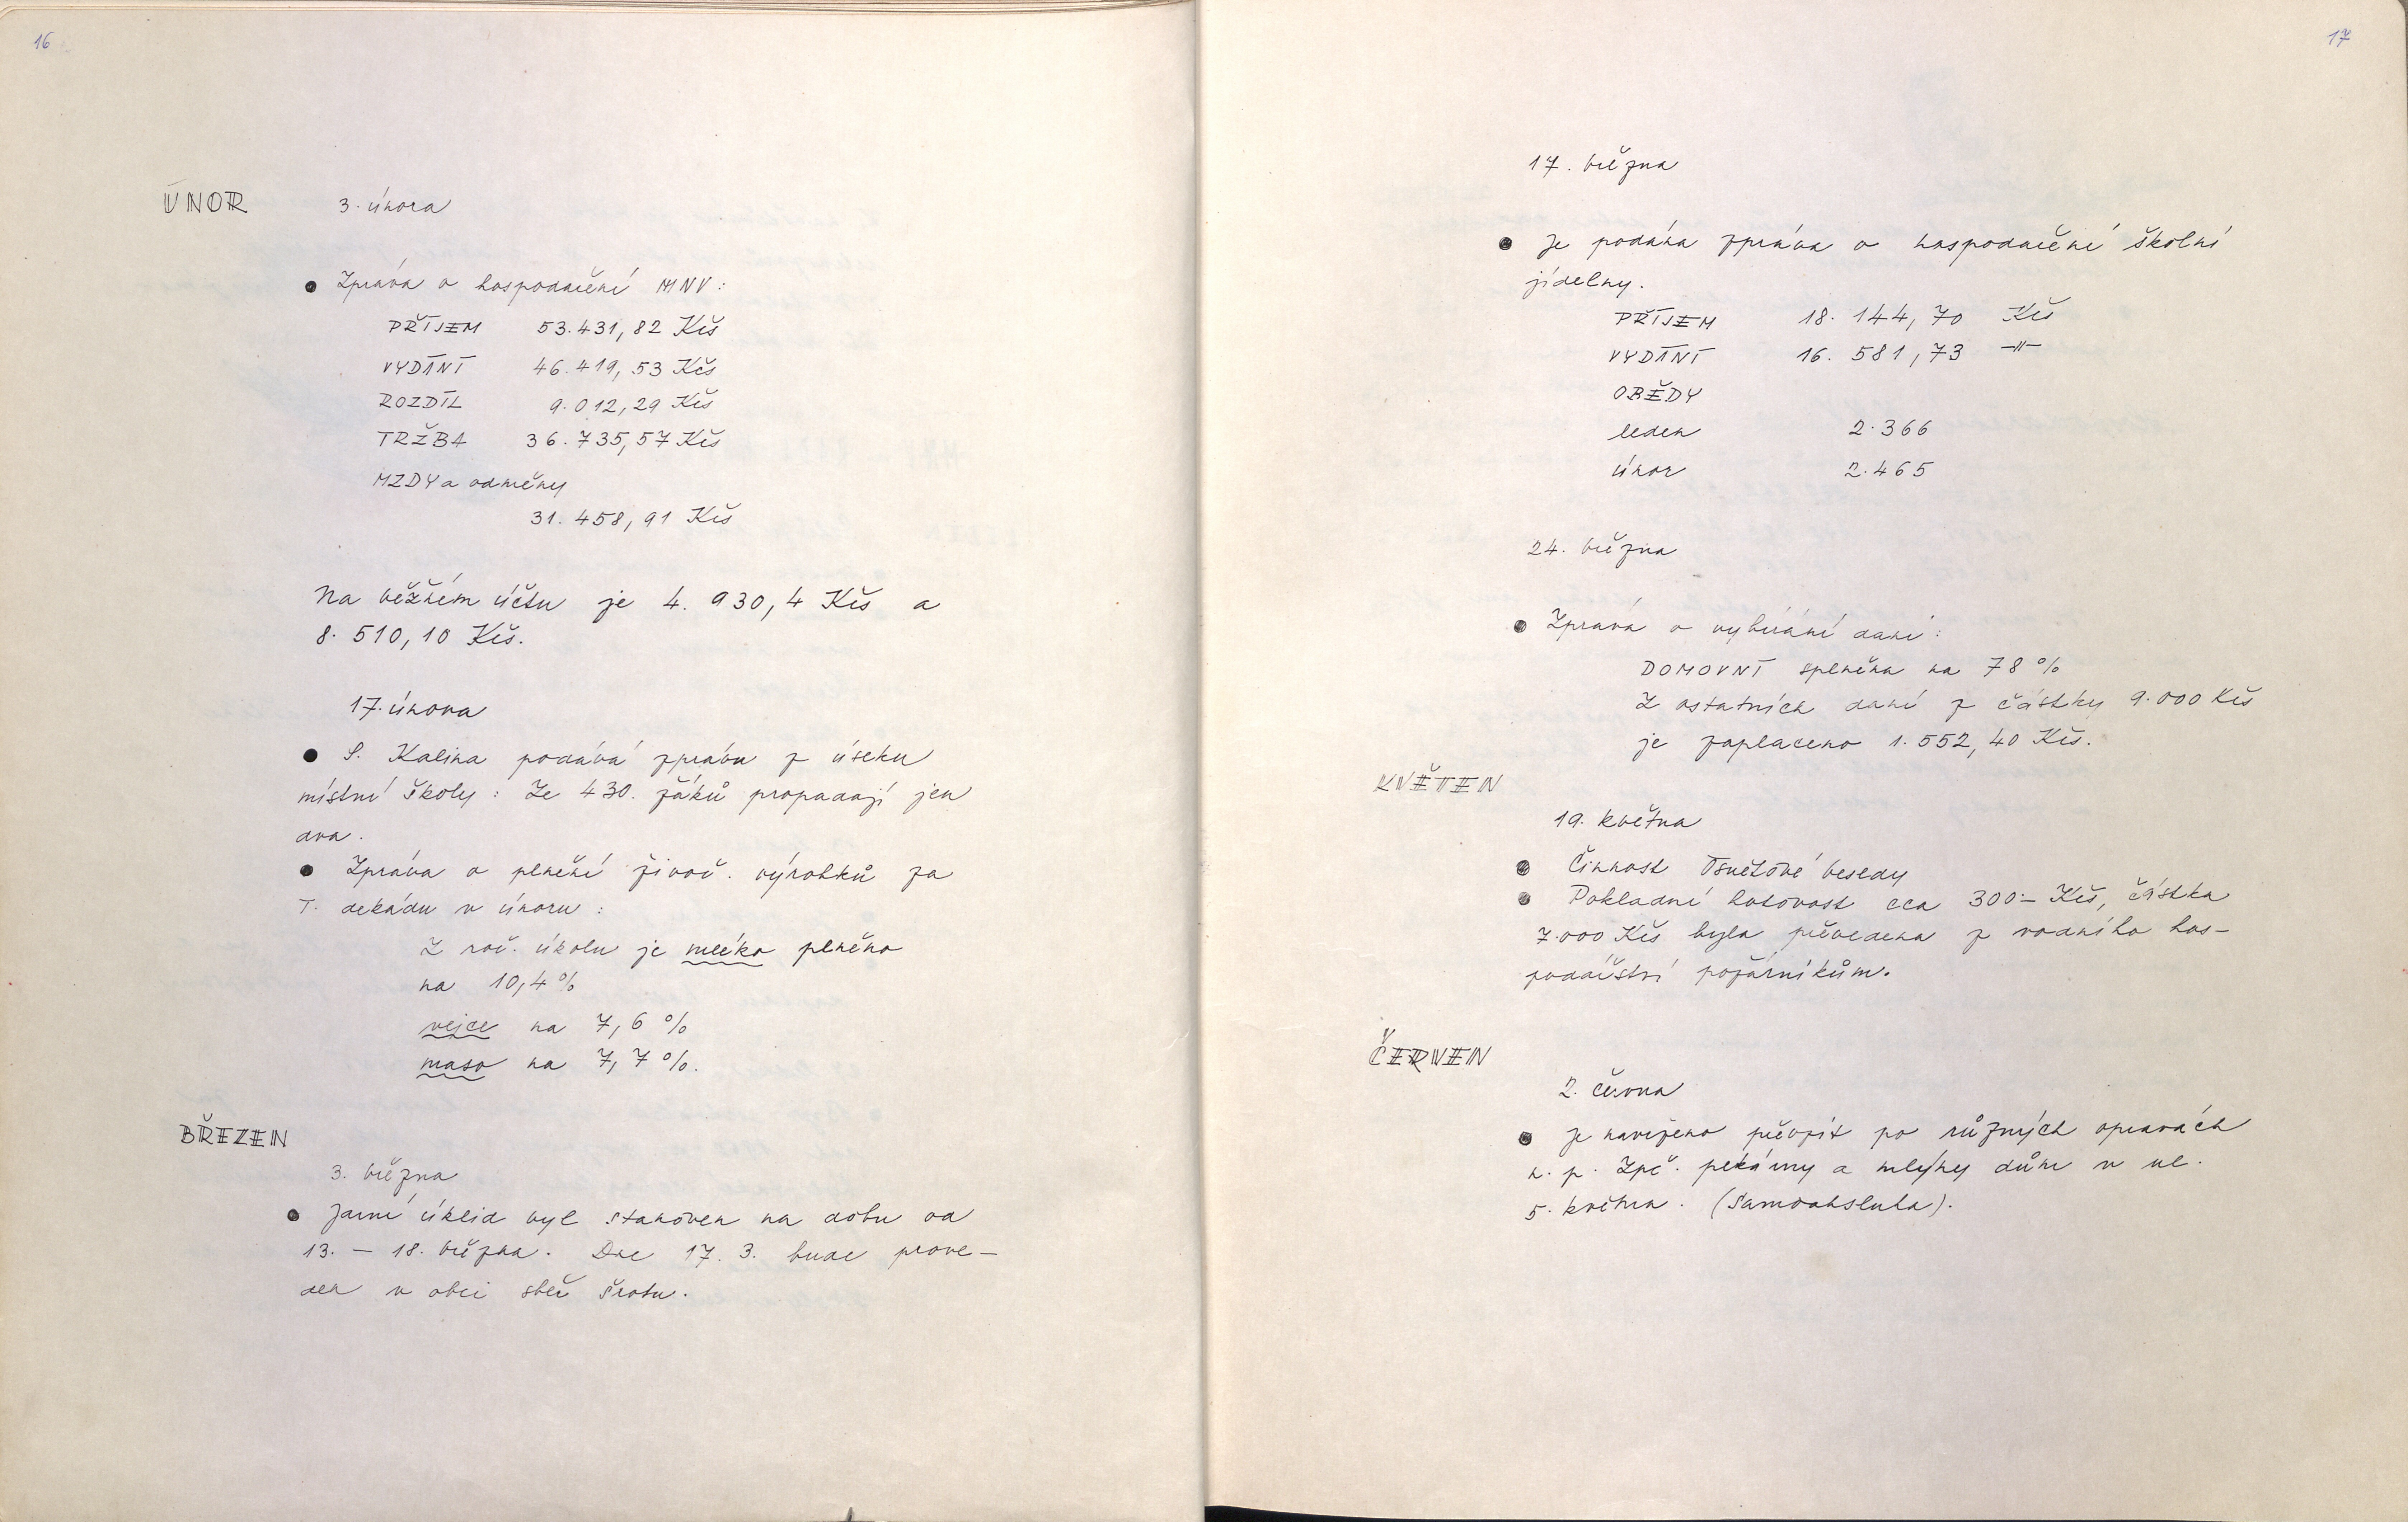 16
ÚNOR 3. února
● Zpráva o hospodaření MNV:
PŘÍJEM 53.431,82 Kčs
VYDÁNÍ 46.419,53 Kčs
ROZDÍL 9.012,29 Kčs
TRŽBA 36.735,57 Kčs
MZDY a odměny
31.458,91 Kčs
Na běžném účtu je 4.930,4 Kčs a
8.510,10 Kčs.
17. února
● S. Kalina podává zprávu z úseku
místní školy: Ze 430. žáků propadají jen
dva.
● Zpráva o plnění živoč. výrobků za
I. dekádu v únoru:
Z roč. úkolu je mléko plněno
na 10,4%
vejce na 7,6 %
maso na 7,7%.
BŘEZEN
3. března
● Jarní úklid byl stanoven na dobu od
13. – 18. března. Dne 17. 3. bude prove-
den v obci sběr šrotu.
17
17. března
● Je podána zpráva o hospodaření školní
jídelny.
PŘÍJEM 18.144,70 Kčs
VYDÁNÍ 16.581,73 -"-
OBĚDY
leden 2.366
únor 2.465
24. března
● Zpráva o vybírání daní:
DOMOVNÍ splněna na 78%
Z ostatních daní z částky 9.000 Kčs
je zaplaceno 1.552,40 Kčs.
KVĚTEN
19. května
● Činnost Osvětové besedy
● Pokladní hotovost cca 300:– Kčs, částka
7.000 Kčs byla převedena z vodního hos-
podářství požárníkům.
ČERVEN
2. června
● Je navrženo převzít po různých opravách
n. p. Zpč. pekárny a mlýny dům v ul.
5. května. (Samoobsluha).